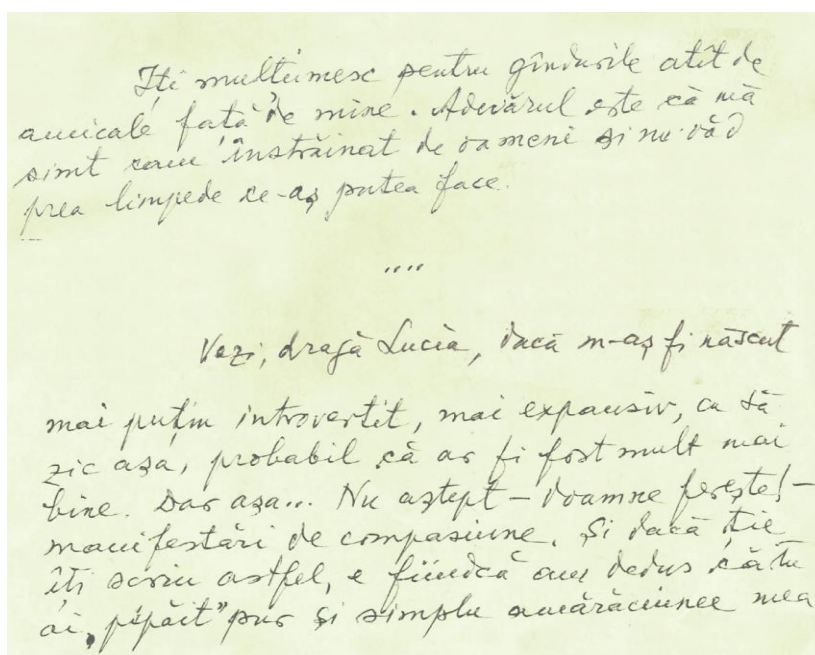 Îți mulțumesc pentru gîndurile atît de
amicale față de mine. Adevărul este că mă
simt cam înstrăinat de oameni și nu văd
prea limpede ce-aș putea face.
....
Vezi, dragă Lucia, dacă m-aș fi născut
mai puțin introvertit, mai expansiv, ca să
zic așa, probabil că ar fi fost mult mai
bine. Dar așa... Nu aștept – doamne ferește! –
manifestări de compasiune. Și dacă ție
îți scriu astfel, e fiindcă am dedus că tu
ai „pipăit" pur și simplu amărăciunea mea